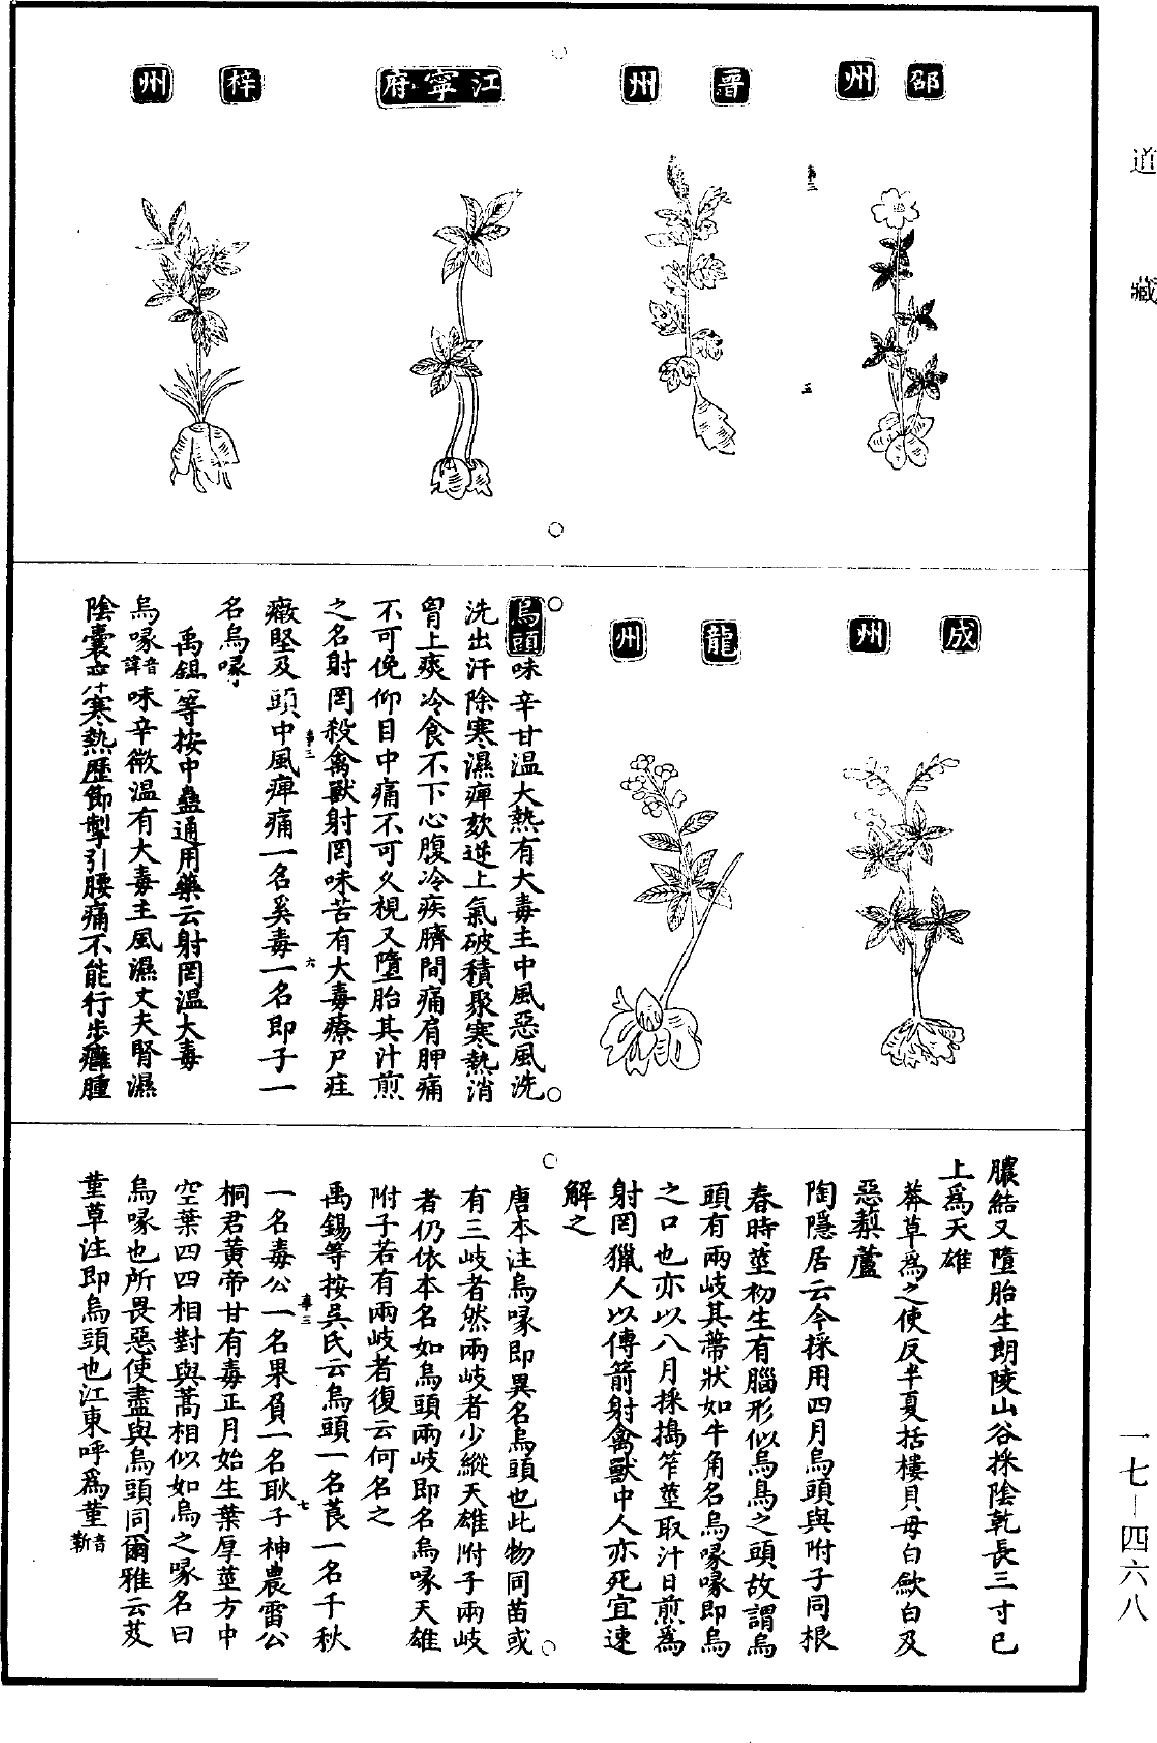 道藏
一七－四六八
邵州
晉州
江寧府
梓州
成州
龍州
烏頭味辛甘温大熱有大毒主中風惡風洗
洗出汗除寒濕痺欬逆上氣破積聚寒熱消
胷上痰冷食不下心腹冷疾臍間痛肩胛痛
不可俛仰目中痛不可久視又墮胎其汁煎
之名射罔殺禽獸射罔味苦有大毒療尸疰
癥堅及頭中風痺痛一名奚毒一名即子一
名烏喙
禹錫等按中蠱通用藥云射罔温大毒
烏喙音諱味辛微温有大毒主風濕丈夫腎濕
陰囊痒寒熱歷節掣引腰痛不能行步癰腫
膿結又墮胎生朗陵山谷採陰乾長三寸已
上爲天雄
莽草爲之使反半夏括樓貝母白歛白及
惡藜蘆
陶隱居云今採用四月烏頭與附子同根
春時莖初生有腦形似烏鳥之頭故謂烏
頭有兩岐其蔕狀如牛角名烏喙喙即烏
之口也亦以八月採搗笮莖取汁日煎爲
射罔獵人以傅箭射禽獸中人亦死宜速
解之
唐本注烏喙即異名烏頭也此物同苗或
有三岐者然兩岐者少縱天雄附子兩岐
者仍依本名如烏頭兩岐即名烏喙天雄
附子若有兩岐者復云何名之
禹錫等按吳氏云烏頭一名莨一名千秋
一名毒公一名果負一名耿子神農雷公
桐君黄帝甘有毒正月始生葉厚莖方中
空葉四四相對與蒿相似如烏之喙名曰
烏喙也所畏惡使盡與烏頭同爾雅云芨
堇草注即烏頭也江東呼爲堇音靳